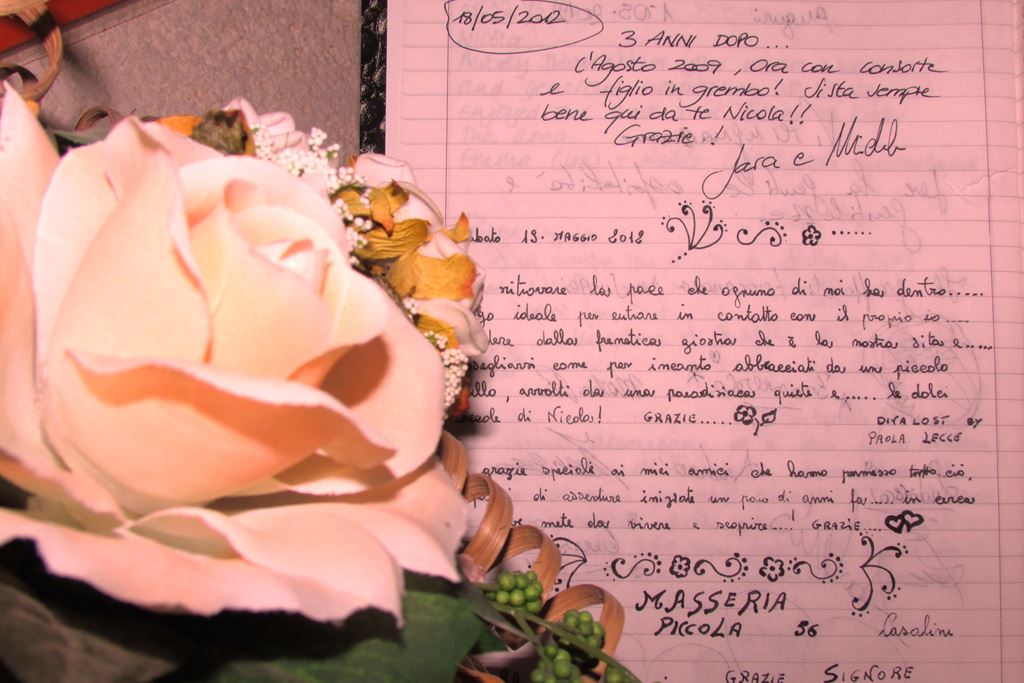 18/05/2012
3 ANNI DOPO...
L'Agosto 2009, Ora con consorte
e figlio in grembo! Si sta sempre
bene qui da te Nicola!!
Grazie!
Jara e
13. MAGGIO 2012
ritrovare la pace che ognuno di noi ha dentro......
ideale per entrare in contatto con il proprio io.....
dalla frenetica giostra che è la nostra vita e......
come per incanto abbracciati da un piccolo
, avvolti da una paradisiaca quiete e...... le dolci
di Nicola! GRAZIE.....
DIVA LOST BY
PAOLA LECCE
grazie speciale ai miei amici che hanno permesso tutto ciò,
di avventure iniziate un paio di anni fa... in cerca
mete da vivere e scoprire...! GRAZIE....
MASSERIA
PICCOLA 56 Casalini
GRAZIE SIGNORE